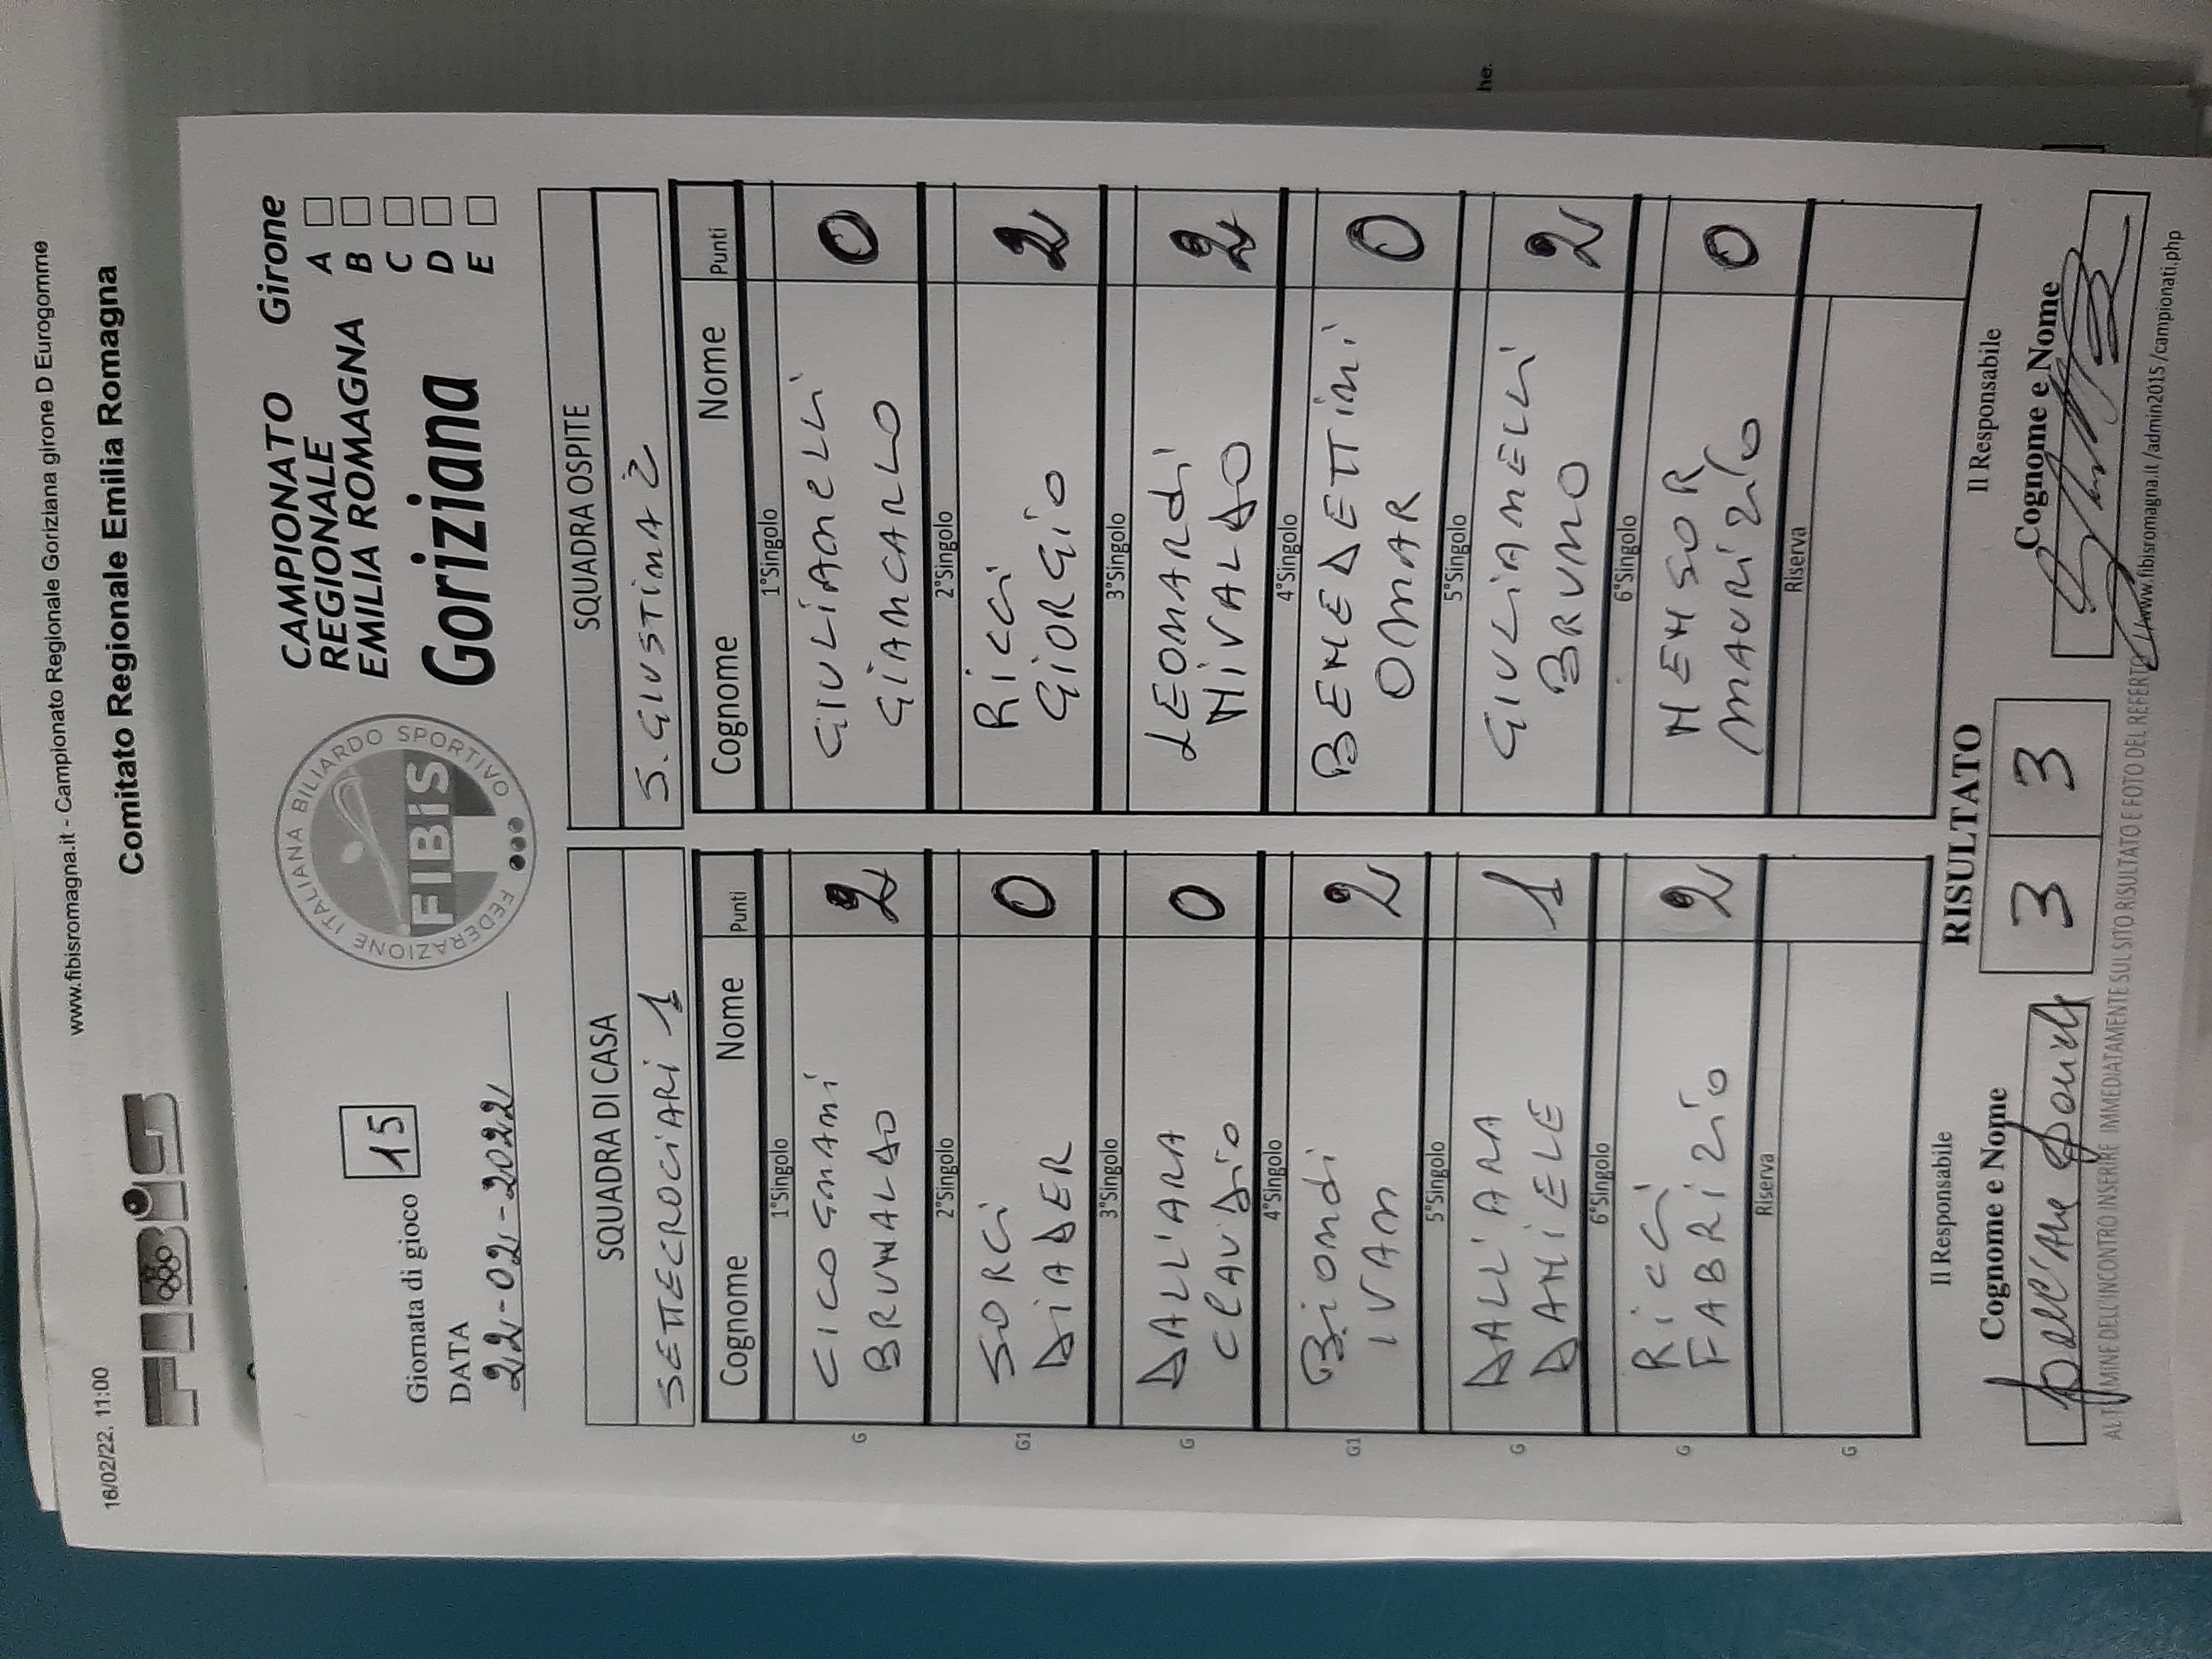 www.fibisromagna.it - Campionato Regionale Goriziana girone D Eurogomme
16/02/22, 11:00
FIBiS
Comitato Regionale Emilia Romagna
he.
Giornata di gioco 15
DATA
22-02-2022
FEDERAZIONE ITALIANA BILIARDO SPORTIVO
FIBiS
CAMPIONATO
REGIONALE
EMILIA ROMAGNA
Goriziana
Girone
A
B
C
D
E
SQUADRA DI CASA
SETTECROCIARI 1
Cognome Nome Punti
1°Singolo
G
CICOGNANI
BRUNALDO
2
2°Singolo
G1
SORCI
DIADER
0
3°Singolo
G
DALL'ARA
CLAUDIO
0
4°Singolo
G1
Biondi
IVAN
2
5°Singolo
G
DALL'ARA
DANIELE
1
6°Singolo
G
RICCI
FABRIZIO
2
Riserva
G
SQUADRA OSPITE
S. GIUSTINA 2
Cognome Nome Punti
1°Singolo
GIULIANELLI
GIANCARLO
0
2°Singolo
RICCI
GIORGIO
2
3°Singolo
LEONARDI
NIVALDO
2
4°Singolo
BENEDETTINI
OMAR
0
5°Singolo
GIULIANELLI
BRUNO
2
6°Singolo
NENSOR
MAURIZIO
0
Riserva
Il Responsabile
Cognome e Nome
Dall'Ara Daniele
RISULTATO
3 3
Il Responsabile
Cognome e Nome
AL TERMINE DELL'INCONTRO INSERIRE IMMEDIATAMENTE SUL SITO RISULTATO E FOTO DEL REFERTO
www.fibisromagna.it/admin2015/campionati.php